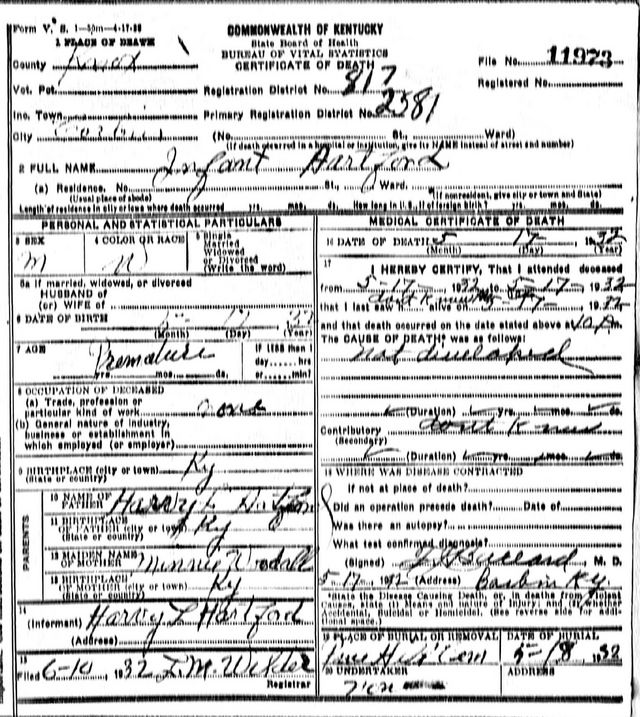 Form V. S. 1-50m-4-17-28
COMMONWEALTH OF KENTUCKY
State Board of Health
BUREAU OF VITAL STATISTICS
CERTIFICATE OF DEATH
1 PLACE OF DEATH
County Knox
File No. 11973
Vot. Pct.
Registration District No. 817
Registered No.
Inc. Town
Primary Registration District No. 2581
City Corbin (No. St., Ward)
(If death occurred in a hospital or institution, give its NAME instead of street and number)
2 FULL NAME Infant Hartford
(a) Residence. No. St., Ward.
(Usual place of abode) (If nonresident, give city or town and State)
Length of residence in city or town where death occurred yrs. mos. ds. How long in U. S., if of foreign birth? yrs. mos. ds.
PERSONAL AND STATISTICAL PARTICULARS
3 SEX M
4 COLOR OR RACE W
5 Single Married Widowed or Divorced (Write the word)
5a If married, widowed, or divorced
HUSBAND of
(or) WIFE of
6 DATE OF BIRTH 5- 17
(Month) (Day) (Year)
7 AGE Premature
yrs. mos. ds.
If LESS than 1
day hrs
or min?
8 OCCUPATION OF DECEASED
(a) Trade, profession or
particular kind of work none
(b) General nature of industry,
business or establishment in
which employed (or employer)
9 BIRTHPLACE (city or town) Ky
(State or country)
PARENTS
10 NAME OF
FATHER Harry L
11 BIRTHPLACE
OF FATHER (city or town) Ky
(State or country)
12 MAIDEN NAME
OF MOTHER Minnie Woodall
13 BIRTHPLACE
OF MOTHER (city or town) Ky
(State or country)
14
(Informant) Harry L Hartford
(Address)
15
Filed 6-10, 1932
Registrar
MEDICAL CERTIFICATE OF DEATH
16 DATE OF DEATH 5 17 1932
(Month) (Day) (Year)
17
I HEREBY CERTIFY, That I attended deceased
from 5-17, 1932, to 5-17, 1932
that I last saw h alive on 1932
and that death occurred on the date stated above at
The CAUSE OF DEATH* was as follows:
not developed
(Duration) yrs. mos. ds.
Contributory dont know
(Secondary)
(Duration) yrs. mos. ds.
18 WHERE WAS DISEASE CONTRACTED
If not at place of death?
Did an operation precede death? Date of
Was there an autopsy?
What test confirmed diagnosis?
(Signed) M. D.
5-17 1932 (Address) Corbin Ky.
*State the Disease Causing Death, or, in deaths from Violent
Causes, state (1) Means and nature of Injury; and (2) whether
Accidental, Suicidal or Homicidal. (See reverse side for additional space.)
19 PLACE OF BURIAL OR REMOVAL Pine Hill Cem
DATE OF BURIAL 5-18, 1932
20 UNDERTAKER
ADDRESS